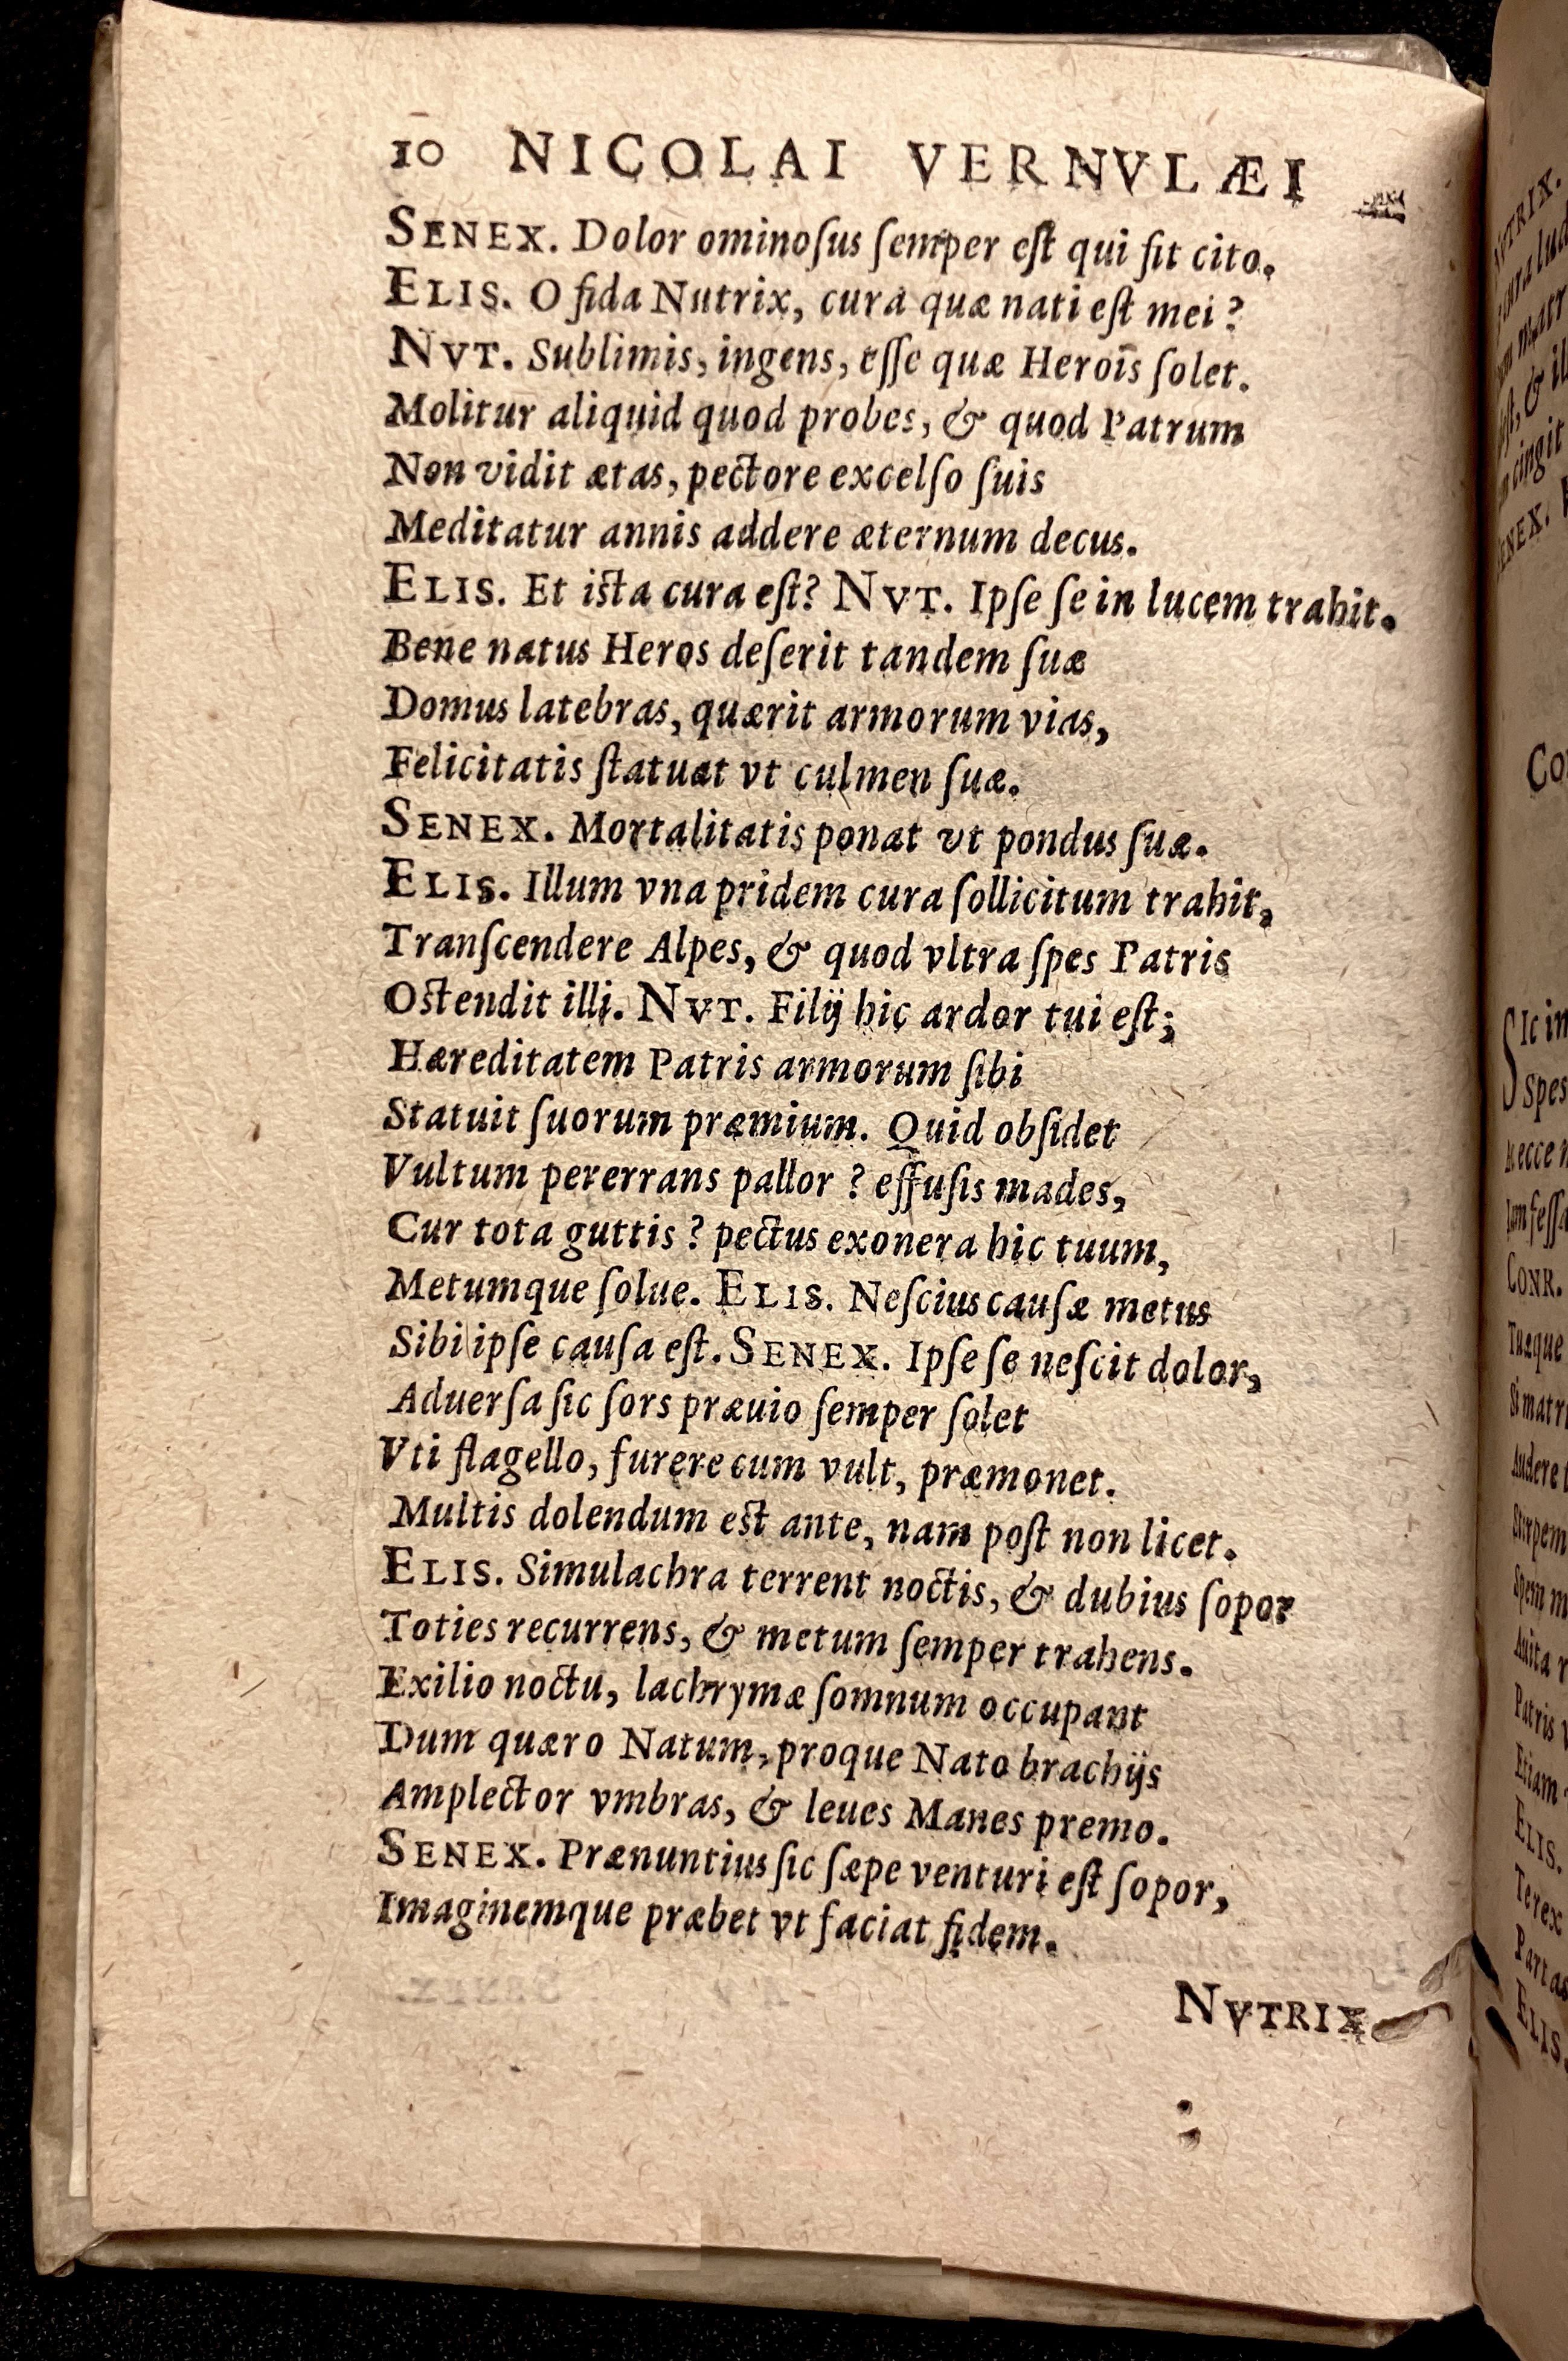 10 NICOLAI VERNVLÆI
SENEX. Dolor ominoſus ſemper eſt qui fit cito.
ELIS. O fida Nutrix, cura quæ nati eſt mei ?
NVT. Sublimis, ingens, eſſe quæ Heroīs ſolet.
Molitur aliquid quod probes, & quod Patrum
Non vidit ætas, pectore excelſo ſuis
Meditatur annis addere æternum decus.
ELIS. Et iſta cura eſt? NVT. Ipſe ſe in lucem trahit.
Bene natus Heros deſerit tandem ſuæ
Domus latebras, quærit armorum vias,
Felicitatis ſtatuat vt culmen ſuæ.
SENEX. Mortalitatis ponat vt pondus ſuæ.
ELIS. Illum vna pridem cura ſollicitum trahit,
Tranſcendere Alpes, & quod vltra ſpes Patris
Oſtendit illi. NVT. Filij hic ardor tui eſt;
Hæreditatem Patris armorum ſibi
Statuit ſuorum præmium. Quid obſidet
Vultum pererrans pallor ? effuſis mades,
Cur tota guttis ? pectus exonera hic tuum,
Metumque ſolue. ELIS. Neſcius cauſæ metus
Sibi ipſe cauſa eſt. SENEX. Ipſe ſe neſcit dolor,
Aduerſa ſic ſors præuio ſemper ſolet
Vti flagello, furere cum vult, præmonet.
Multis dolendum eſt ante, nam poſt non licet.
ELIS. Simulachra terrent noctis, & dubius ſopor
Toties recurrens, & metum ſemper trahens.
Exilio noctu, lachrymæ ſomnum occupant
Dum quæro Natum, proque Nato brachijs
Amplector vmbras, & leues Manes premo.
SENEX. Prænuntius ſic ſæpe venturi eſt ſopor,
Imaginemque præbet vt faciat fidem.
NVTRIX